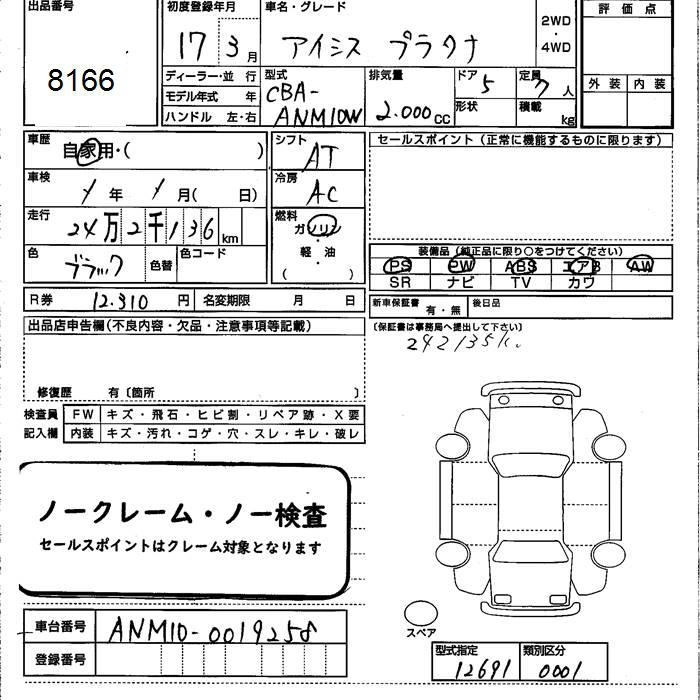 出品番号
8166
初度登録年月
17 3月
車名・グレード
アイシス プラタナ
2WD
・
4WD
評価点
外装 内装
ディーラー・並 行
モデル年式 年
ハンドル 左・右
型式
CBA-
ANM10W
排気量
2.000cc
ドア 5
形状
定員 7人
積載 kg
車歴
自家用・( )
シフト
AT
セールスポイント (正常に機能するものに限ります)
車検
年 月( 日)
冷房
AC
走行
24万2千136km
燃料
ガソリン
軽・油
( )
色
ブラック
色替
色コード
装備品 (純正品に限り○をつけてください)
PS PW ABS エアB AW
SR ナビ TV カワ
R券 12.310 円 名変期限 月 日
新車保証書 有・無 後日品
(保証書は事務局へ提出して下さい)
出品店申告欄(不良内容・欠品・注意事項等記載)
242135K
修復歴 有〔箇所 〕
検査員 FW キズ・飛石・ヒビ割・リペア跡・X要
記入欄 内装 キズ・汚れ・コゲ・穴・スレ・キレ・破レ
ノークレーム・ノー検査
セールスポイントはクレーム対象となります
スペア
車台番号 ANM10-0019258
登録番号
型式指定 類別区分
12691 0001